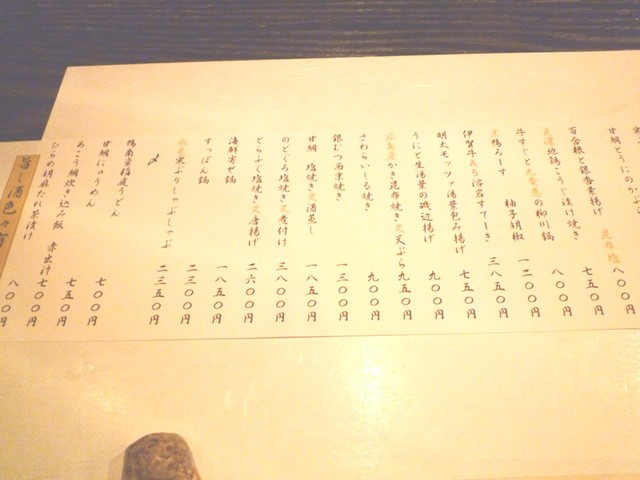 甘鯛とうにのかぶ
昆布塩 八〇〇円
百合根と銀杏素揚げ 七五〇円
地鶏こうじ漬け焼き 八〇〇円
牛すじと九条葱の柳川鍋 一二〇〇円
鴨ろーす 柚子胡椒
伊賀牛ひれ溶岩すてーき 三八五〇円
明太モッツァ湯葉包み揚げ 七五〇円
うにと生湯葉の磯辺揚げ 九〇〇円
広島産かき昆布焼き又天ぷら 九五〇円
さわらいしる焼き 九〇〇円
銀むつ西京焼き 一三〇〇円
甘鯛 塩焼き又酒蒸し 一八五〇円
のどぐろ塩焼き又煮付け 三八〇〇円
とらふぐ塩焼き又唐揚げ 二六〇〇円
海鮮寄せ鍋 一八五〇円
すっぽん鍋 二三〇〇円
氷見寒ぶりしゃぶしゃぶ 二三五〇円
〆
鴨南蛮稲庭うどん
甘鯛にゅうめん 七〇〇円
あこう鯛炊き込み飯 赤出汁 七五〇円
ひらめ胡麻だれ茶漬け 七〇〇円
旨し酒色々有
八〇〇円